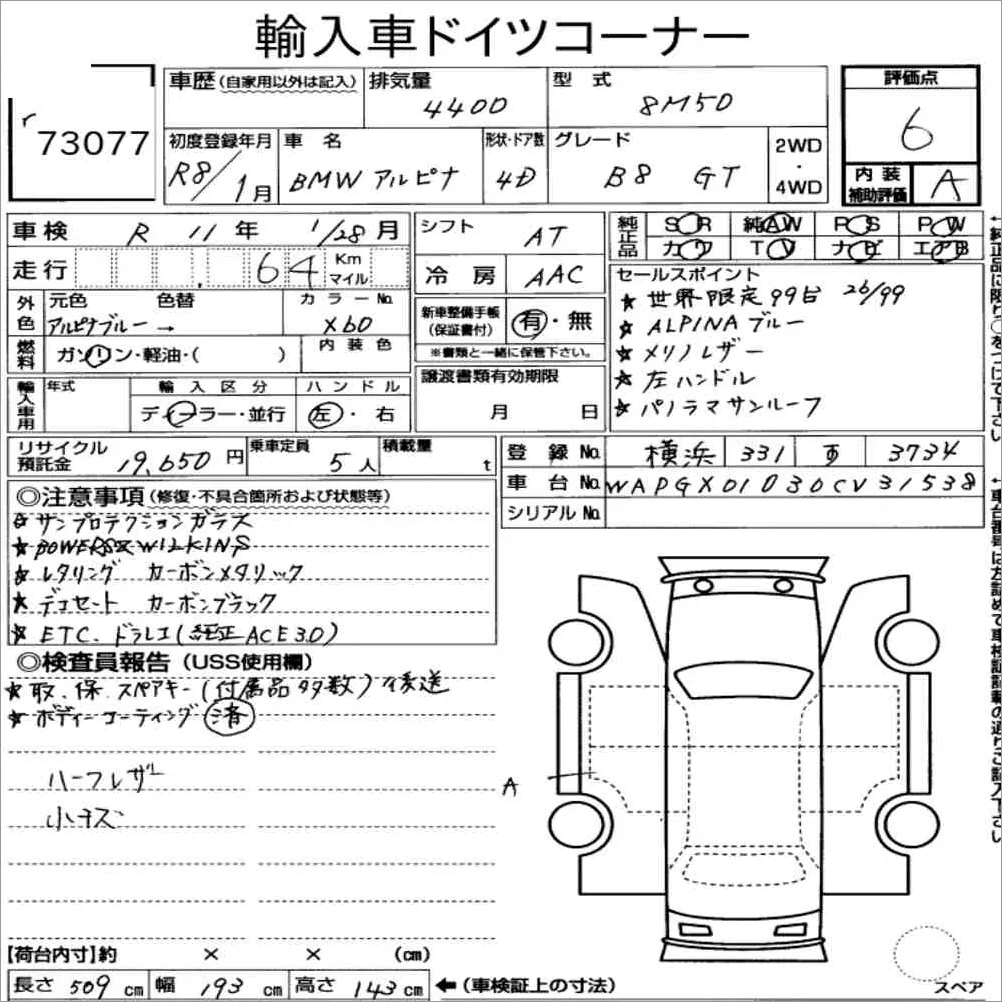 輸入車ドイツコーナー
r
73077
車歴(自家用以外は記入)
排気量 4400
型式 8M50
評価点 6
初度登録年月 R8/1月
車名 BMW アルピナ
形状・ドア数 4D
グレード B8 GT
2WD・4WD
内装補助評価 A
車検 R 11年 1/28月
走行 64 Km マイル
シフト AT
冷房 AAC
純正品 SR 純AW PS PW
カワ TV ナビ エアB
外色 元色 色替 カラーNo.
アルピナブルー → X60
燃料 ガソリン・軽油・( ) 内装色
新車整備手帳(保証書付) 有・無
※書類と一緒に保管下さい。
セールスポイント
★ 世界限定99台 26/99
★ ALPINAブルー
★ メリノレザー
★ 左ハンドル
★ パノラマサンルーフ
輸入車用 年式 輸入区分 ハンドル
ディーラー・並行 左・右
譲渡書類有効期限
月 日
リサイクル預託金 19,650円
乗車定員 5人
積載量 t
登録No. 横浜 331 す 3734
車台No. WAPGX01030CV31538
シリアルNo.
◎注意事項(修復・不具合箇所および状態等)
★ サンプロテクションガラス
★ BOWERS&WILKINS
★ レタリング カーボンメタリック
★ デコセート カーボンブラック
★ ETC. ドラレコ(純正ACE3.0)
◎検査員報告(USS使用欄)
★ 取、保、スペアキー(付属品多数)後送
★ ボディーコーティング 済
ハーフレザー
小キズ
A
【荷台内寸】約 × × (cm)
長さ 509 cm 幅 193 cm 高さ 143 cm ←(車検証上の寸法)
スペア
←純正品に限り○をつけて下さい
←車台番号は左詰めで車検証記載の通りご記入下さい